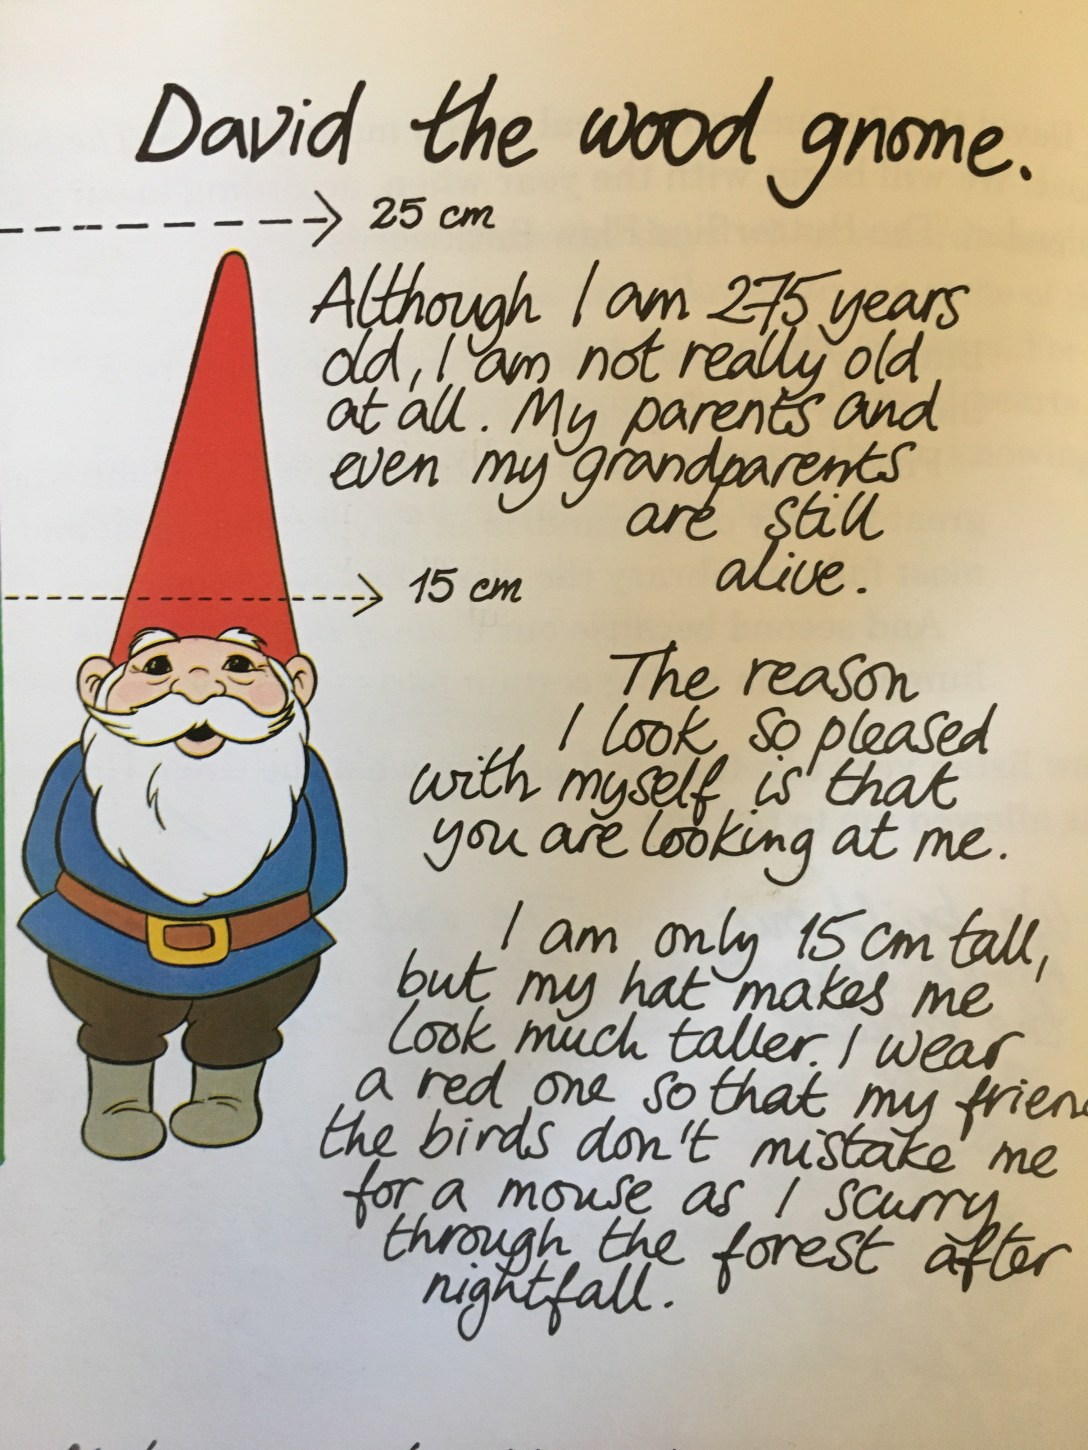 David the wood gnome.
25 cm
Although I am 275 years
old, I am not really old
at all. My parents and
even my grandparents
are still
alive.
15 cm
The reason
I look so pleased
with myself is that
you are looking at me.
I am only 15 cm tall,
but my hat makes me
look much taller. I wear
a red one so that my frien
the birds don't mistake me
for a mouse as I scurry
through the forest after
nightfall.